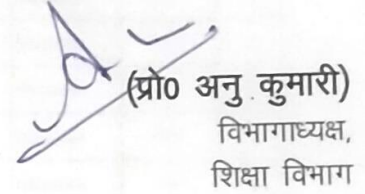 (प्रो0 अनु कुमारी)
विभागाध्यक्ष,
शिक्षा विभाग